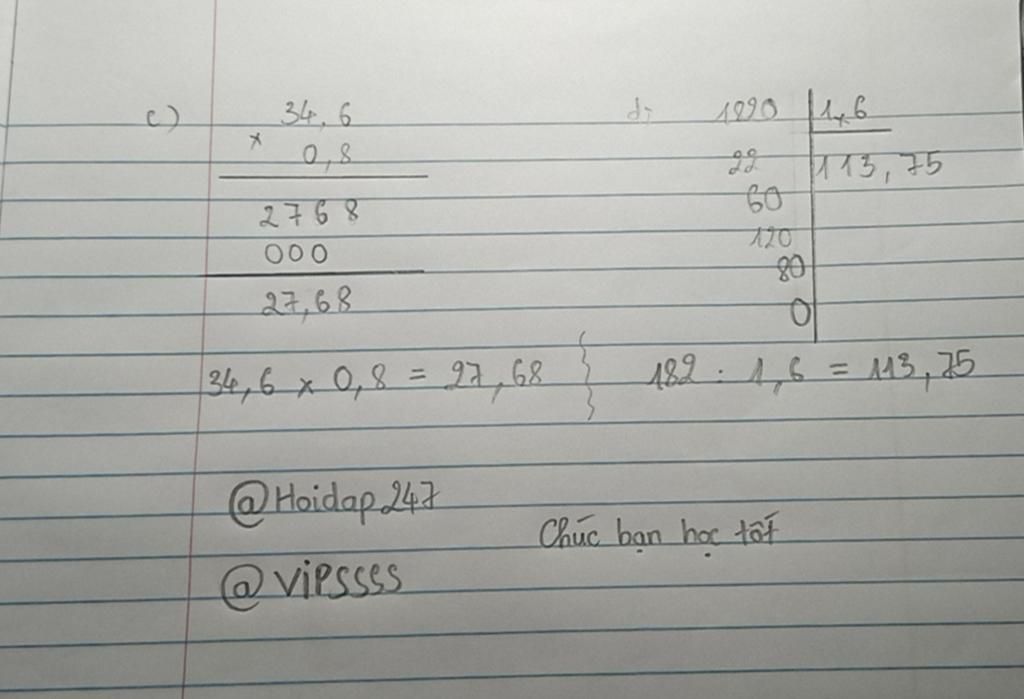 c) 34,6
×
0,8
2768
000
27,68
34,6 x 0,8 = 27,68
d; 1820 1,6
22 113,75
60
120
80
0
182 : 1,6 = 113,75
@Hoidap247
Chúc bạn học tốt
@vipssss